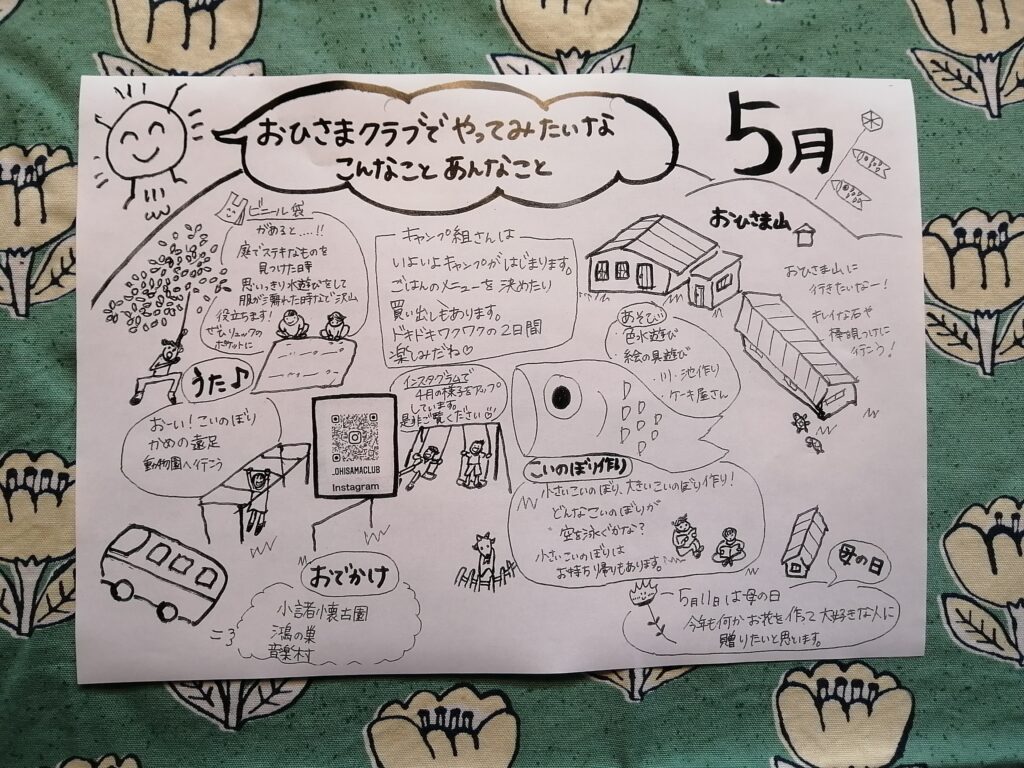 おひさまクラブで やってみたいな
こんなこと あんなこと
5月
ビニール袋
があると….!!
庭でステキなものを
見つけた時
思いっきり水遊びをして
服が濡れた時など沢山
役立ちます!
ぜひリュックの
ポケットに
キャンプ組さんは
いよいよキャンプがはじまります。
ごはんのメニューを決めたり
買い出しもあります。
ドキドキワクワクの2日間
楽しみだね♡
おひさま山
おひさま山に
行きたいなー!
キレイな石や
棒
行こう!
あそび
色水遊び
・絵の具遊び
・川・池作り
・ケーキ屋さん
うた♪
おーい!こいのぼり
かめの遠足
動物園へ行こう
インスタグラムで
4月の様子をアップ
しています。
是非ご覧ください♡
_OHISAMACLUB
Instagram
こいのぼり作り
小さいこいのぼり、大きいこいのぼり作り!
どんなこいのぼりが
空を泳ぐかな?
小さいこいのぼりは
お持ち帰りもあります。
おでかけ
小諸懐古園
鴻の巣
音楽村
母の日
5月11日は母の日
今年も何かお花を作って大好きな人に
贈りたいと思います。